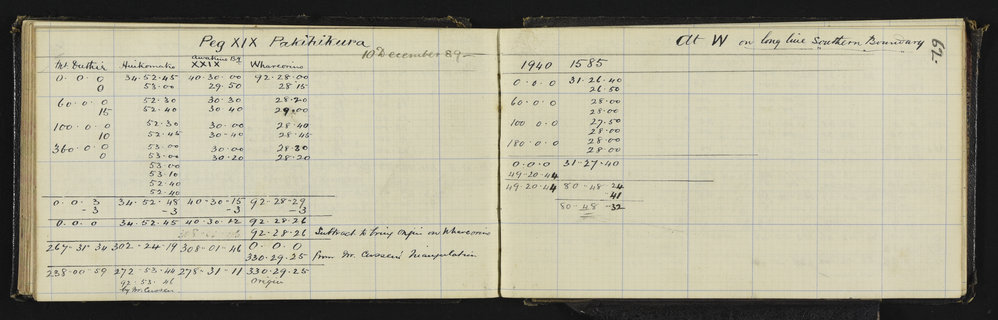 Peg XIX Pakihikura
10 December 89
Awakino Bg
Mt. Huikomako XXIX Whareorino
0. 0. 0 34. 52. 45 40. 30. 00 92. 28. 00
0 53. 00 29. 50 28 15
60. 0. 0 52. 30 30. 30 28. 20
15 52. 40 30. 40 29. 00
100. 0. 0 52. 30 30. 00 28. 40
10 52. 45 30. 40 28. 45
360. 0. 0 53. 00 30. 00 28. 30
0 53. 00 30. 20 28. 20
53. 00
53. 10
52. 40
52. 40
0. 0. 3 34. 52. 48 40. 30. 15 92. 28. 29
- 3 - 3 - 3 - 3
0. 0. 0 34. 52. 45 40. 30. 12 92. 28. 26
92. 28. 26 Subtract to bring Origin on Whareorino
267. 31. 34 302. 24. 19 308. 01. 46 0. 0. 0
330. 29. 25 from Mr. Cussen's Triangulation
238. 00. 59 272. 53. 44 278. 31. 11 330. 29. 25
92. 53. 46 Origin
by Mr. Cussen
At W on long line Southern Boundary
62.
1940 1585
0. 0. 0 31. 26. 40
26. 50
60. 0. 0 28. 00
28. 00
100. 0. 0 27. 50
28. 00
180. 0. 0 28. 00
28. 00
0. 0. 0 31. 27. 40
49. 20. 44
49. 20. 44 80. 48. 24
41
80. 48. 32